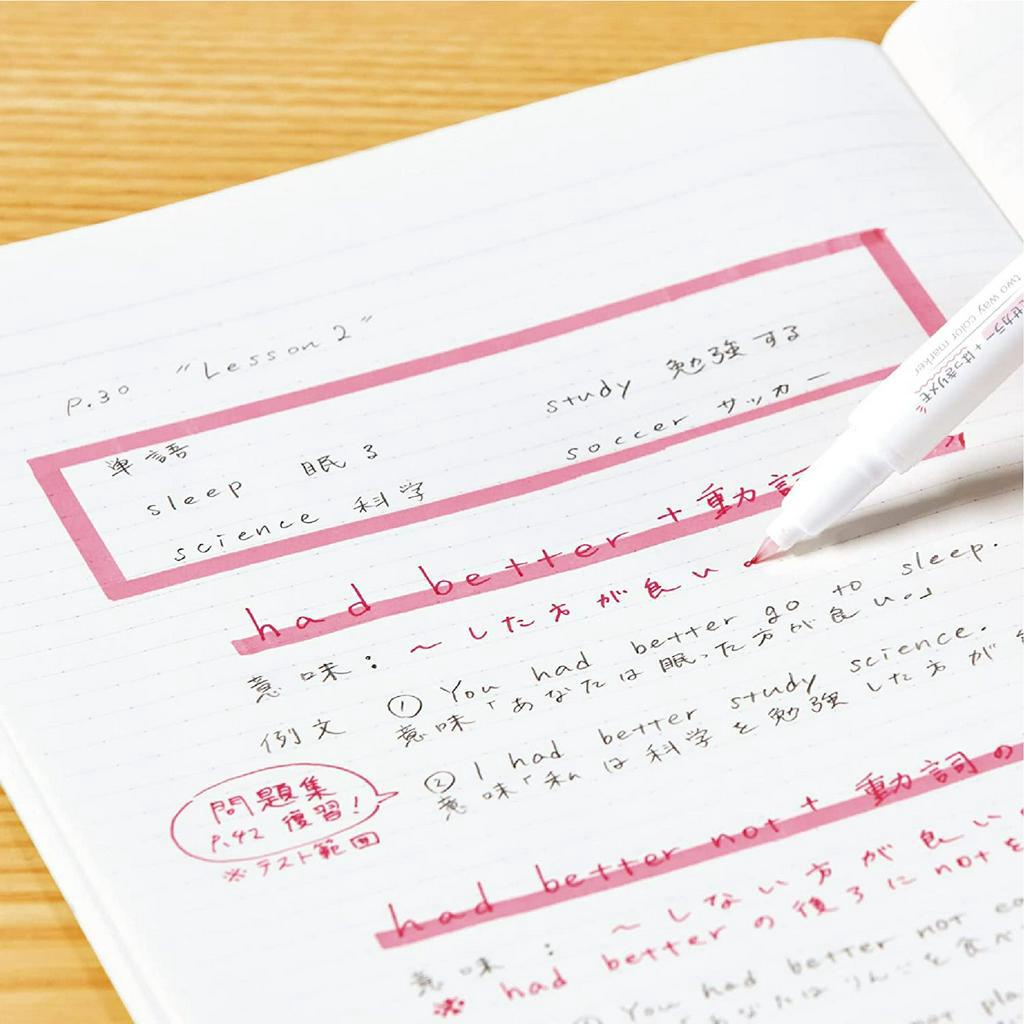 P.30 "Lesson 2"
単語
study 勉強する
sleep 眠る
soccer サッカー
science 科学
had better + 動詞
意味: ~した方が良い
例文 ① You had better go to sleep.
意味「あなたは眠った方が良い。」
② I had better study science.
意味「私は科学を勉強した方が
問題集
P.42 復習!
※テスト範囲
had better not + 動詞の
意味: ~しない方が良い
※ had better の後ろに not を
You had better not
two way color marker
カラー + はっきりメモ